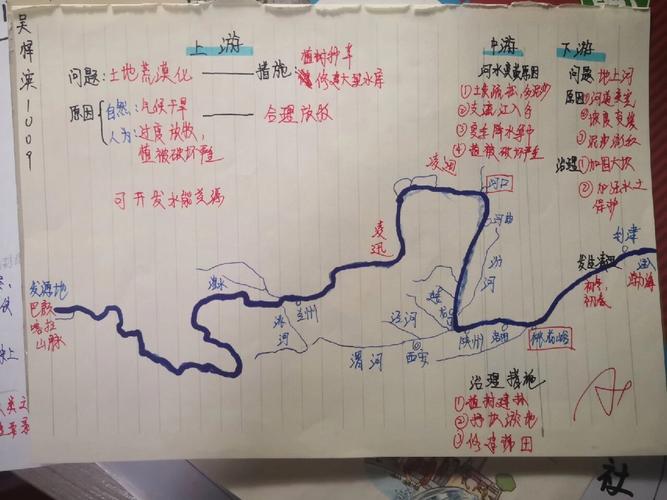 上游
问题：土地荒漠化——措施 植树种草
修建大型水库
原因 自然：气候干旱
人为：过度放牧， 合理放牧
植被破坏严重
可开发水能资源
中游
河水黄浊原因
②支流汇入多
③夏季降水集中
④植被破坏严重
下游
问题 地上河
原因①河道变宽
②坡度变缓
③泥沙淤积
治理①加固大坝
②加强水土
保护
凌汛
河口
凌汛
河曲
汾
河
利津
渤海
发生凌汛
初冬，
初春
发源地
巴颜
喀拉
山脉
湟水
兰州
洮
河
泾河
渭河
西安
陕州
洛阳
桃花峪
治理措施
①植树造林
③修建梯田
吴梓滨1009